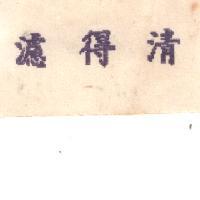 濾得清